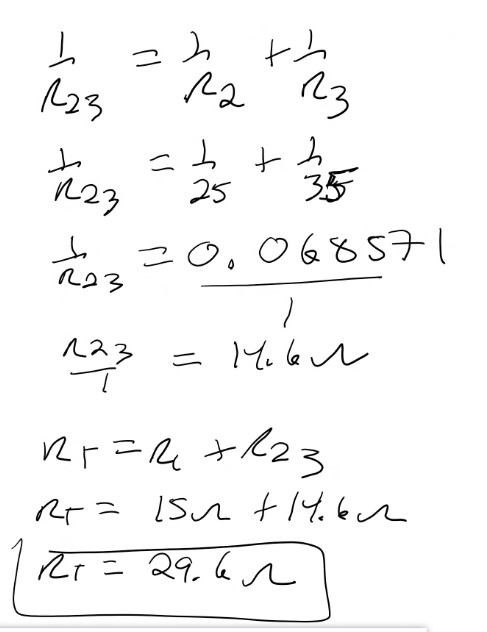 1/R23 = 1/R2 + 1/R3
1/R23 = 1/25 + 1/35
1/R23 = 0.068571/1
R23/1 = 14.6Ω
RT = R1 + R23
RT = 15Ω + 14.6Ω
RT = 29.6Ω